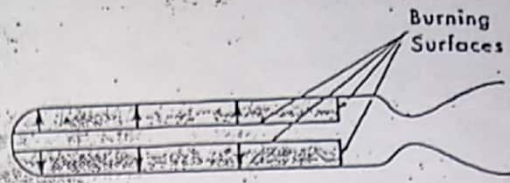 Burning
Surfaces